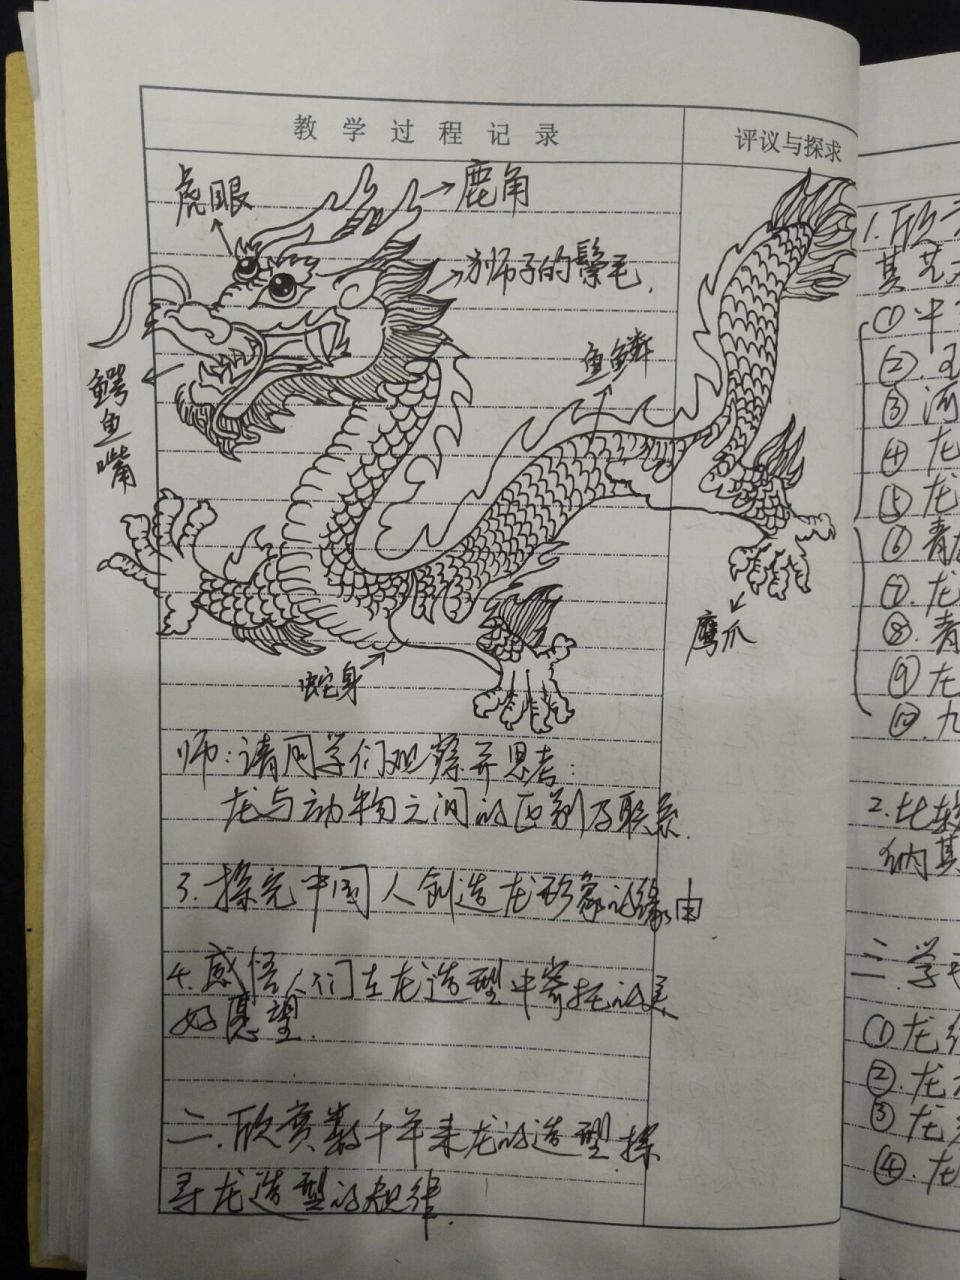 教学过程记录
评议与探求
虎眼
鹿角
狮子的鬃毛.
鱼鳞
鳄鱼嘴
鹰爪
蛇身
师:请同学们观察并思考:
龙与动物之间的区别及联系.
3.探究中国人创造龙形象的缘由
4.感悟人们在龙造型中寄托的美
好愿望.
二.欣赏数千年来龙的造型.探
寻龙造型的规律.
1.欣
其艺
①中
②.
③河
④龙
⑤龙
⑥青
⑦.龙
⑧.青
⑨龙
⑩.九
2.比较
纳其
三.学
①龙
②.龙
③龙
④.龙